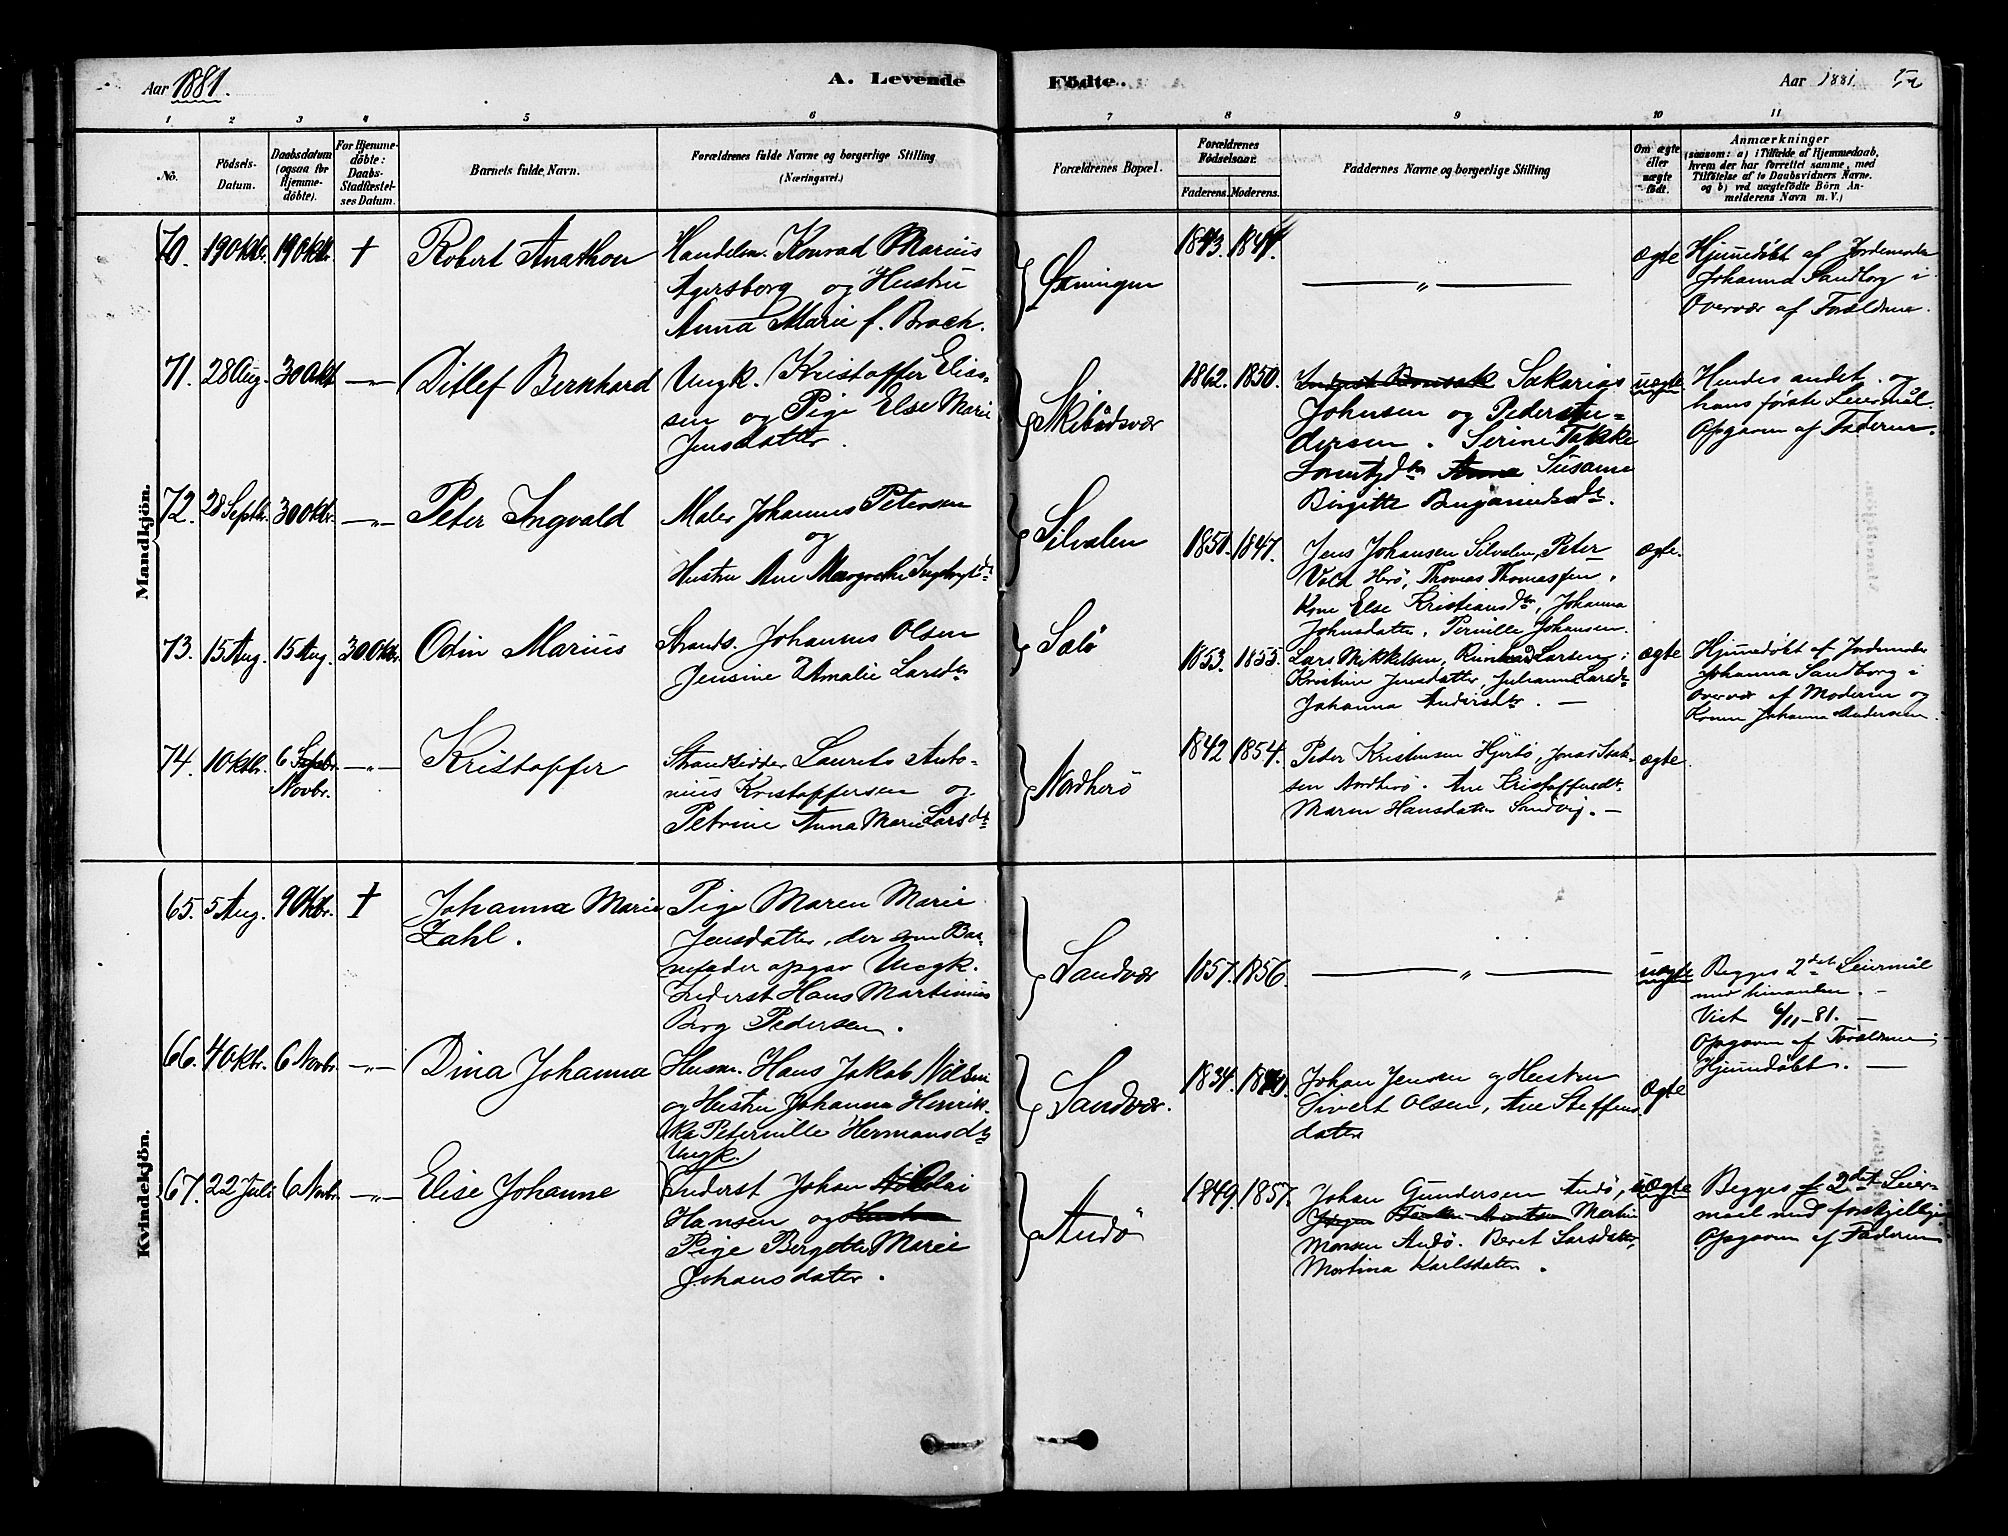 Aar 1881.
A. Levende
Födte.
Aar 1881
1 2 3 4 5 6 7 8 9 10 11
No.
Födsels-Datum.
Daabsdatum (ogsaa for Hjemme-döbte).
For Hjemme-döbte: Daabs-Stadfæstel-ses Datum.
Barnets fulde Navn.
Forældrenes fulde Navne og borgerlige Stilling (Næringsvei.)
Forældrenes Bopæl.
Forældrenes Födselsaar.
Faderens. Moderens.
Faddernes Navne og borgerlige Stilling
Om ægte eller uægte födt.
Anmærkninger
(saasom: a) i Tilfælde af Hjemmedaab,
hvem der har forrettet samme, med
Tilföielse af to Daabsvidners Navne.
og b) ved uægtefödte Börn An-
melderens Navn m. V.)
Mandkjön.
70. 19 Oktbr. 19 Oktbr. + Robert Anathon
Handelsm. Konrad Marius
Agersborg og Hustru
Anna Marie f. Broch.
1843. 1844.
— „ —
ægte
Hjemmedøbt af Jordemoder
Johanna Sandborg i
Overvær af Forældrene.
71. 28 Aug. 30 Okt —„— Ditlef Bernhard
Ungk. Kristoffer Elias-
sen og Pige Else Marie
Jensdatter.
Skibådsvær
1862. 1850.
Sakarias
Johnsen og Peder
dersen. Serine
Susanna
Birgitte
uægte
Hendes andet og
hans første Leiermål.
Opgaven af Faderen.
72. 28 Septbr. 30 Oktbr. —„— Peter Ingvald
Maler Johannes Petersen
og
Hustru Ane Margrethe
Silvalen
1850. 1847.
Jens Johansen Silvalen, Peter
Vold Herö, Thomas Thomassen,
Kone Else Kristiansdtr, Johanna
Johnsdatter, Pernille Johansen.
ægte.
73. 15 Aug. 15 Aug. 30 Oktbr. Odin Marius
Strands. Johannes Olsen
Jensine Amalie Larsdtr
Salö
1853. 1855.
Lars Mikkelsen, Larsen,
Kristine Jensdatter, Julianna Larsdtr
Johanna Andersdtr. —
ægte
Hjemmedøbt af Jordemoder
Johanna Sandborg i
Overvær af Moderen og
Konen Johanna Andersen.
74. 1 Oktbr. 6 Septbr. —„— Kristoffer
Novbr.
Strandsidder Laurits Anto-
nius Kristoffersen og
Petrine Anna Marie Larsdtr
Nordherö
1842 1854.
Peder Kristensen Hjertö, Jonas Isak-
sen Nordherö. Ane Kristoffersdtr.
Maren Hansdatter Sandvig. —
ægte
Kvindekjön.
65. 5 Aug. 9 Oktbr. + Johanna Marie
Zahl.
Pige Maren Marie
Jensdatter, der som Bar-
nefader opgav Ungk.
Inderst Hans Martinius
Berg Pedersen.
Sandvær
1857. 1856.
— „ —
uægte
Begges 2det Leiermål
med hinanden. —
Viet 6/11-81. —
Opgaven af Forældrene
Hjemmedøbt. —
66. 4 Oktbr. 6 Novbr. —„— Dina Johanna
Husm. Hans Jakob Nilsen
og Hustru Johanna Henrik-
ka Peternille Hermansdtr
Sandvær.
1834.
Johan Jensen og Hustru
Sivert Olsen, Ane Steffens
datter
ægte
67. 22 Juli 6 Novbr. —„— Elise Johanne
Ungk.
Inderst Johan Nikolai
Hansen og Hustru
Pige Bergette Marie
Johansdatter.
Andö
1849. 1857.
Johan Gundersen Andö,
Martin
Monsen Andö. Beret Larsdatter,
Martina Karlsdatter.
uægte
Begges 2det Leier-
maal med forskjellige.
Opgaven af Faderen